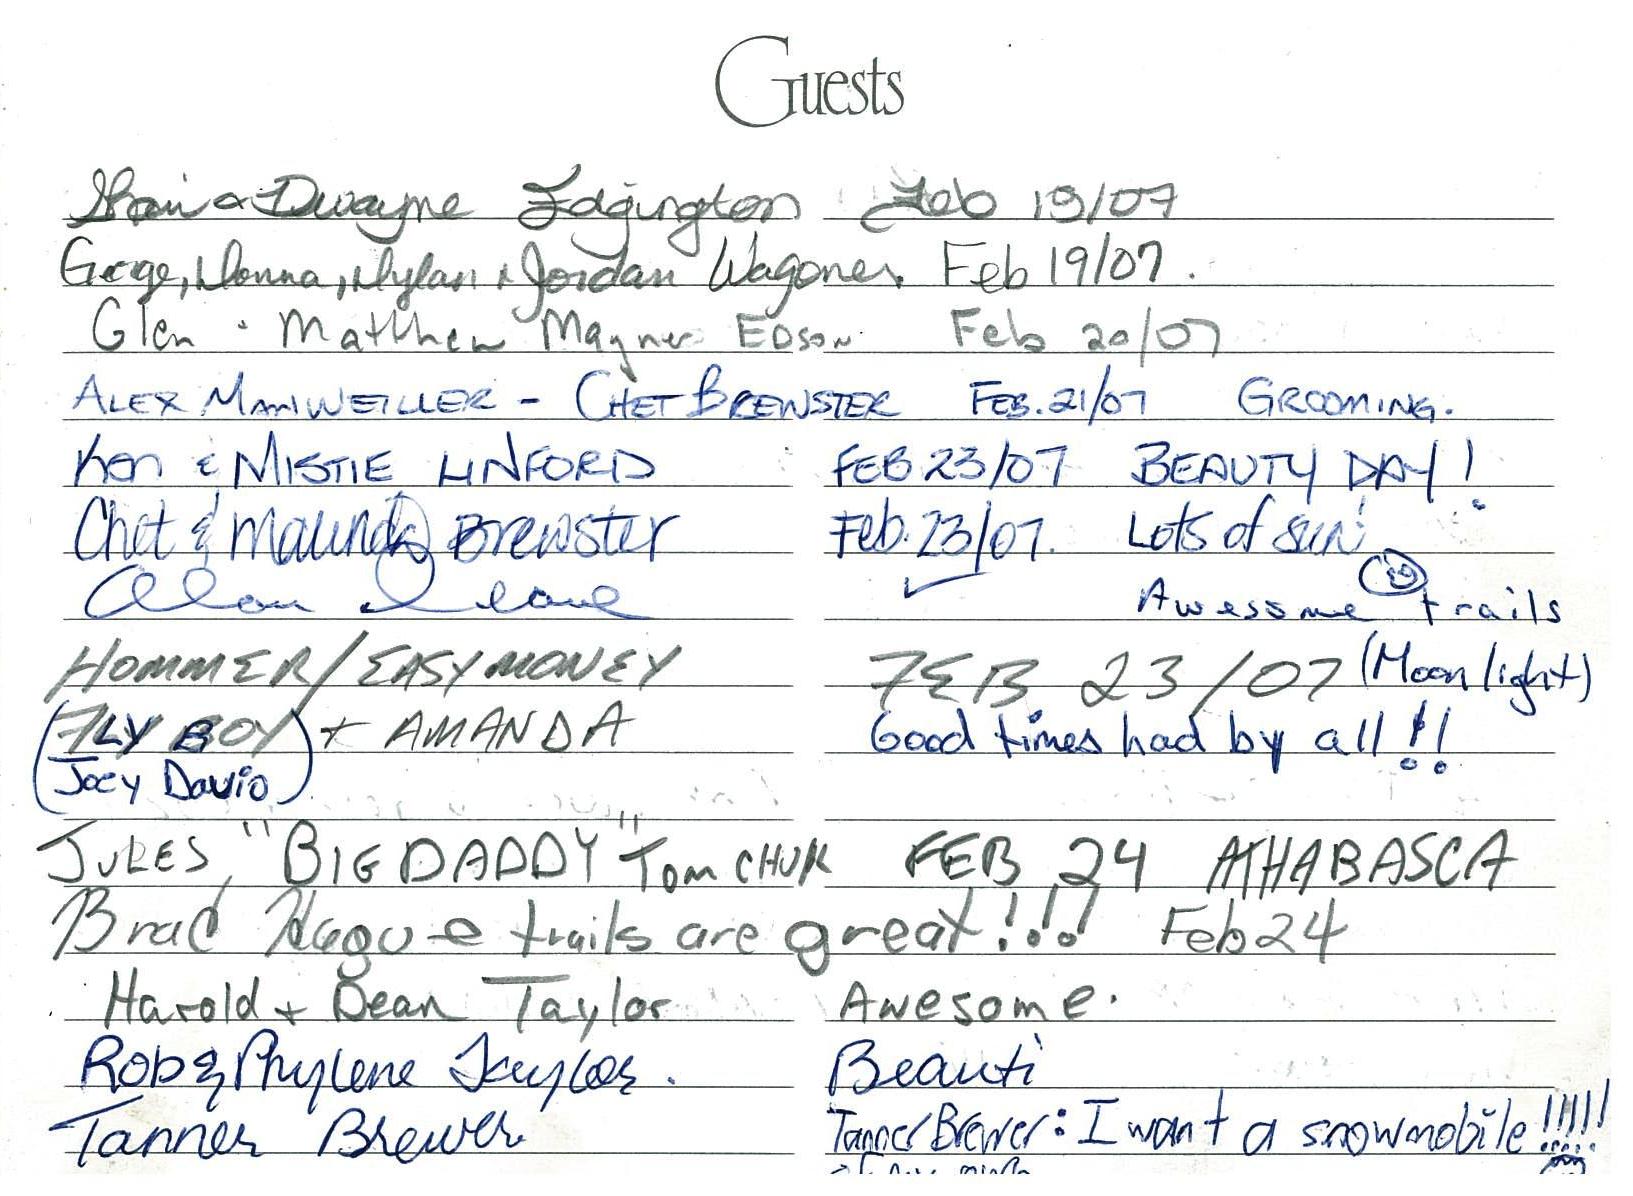 Guests
& Dwayne Edgington Feb 19/07
George, Donna, Dylan & Jordan Wagoner. Feb 19/07.
Glen · Matthew Magner Edson Feb 20/07
ALEX MANWEILLER - CHET BREWSTER FEB. 21/07 GROOMING.
Ken & MISTIE LINFORD FEB 23/07 BEAUTY DAY!
Chet & Maunda Brewster Feb. 23/07. Lots of sun!
Alan Awesome trails
HOMMER/EASYMONEY FEB 23/07 (Moonlight)
(FLY BOY + AMANDA Good times had by all!!
Joey Davio)
JULES "BIG DADDY" TOMCHUK FEB 24 ATHABASCA
Brad Hague trails are great!!! Feb 24
Harold + Dean Taylor Awesome.
Rob & Phylene Taylor. Beauti
Tanner Brewer Tanner Brewer: I want a snowmobile!!!!!